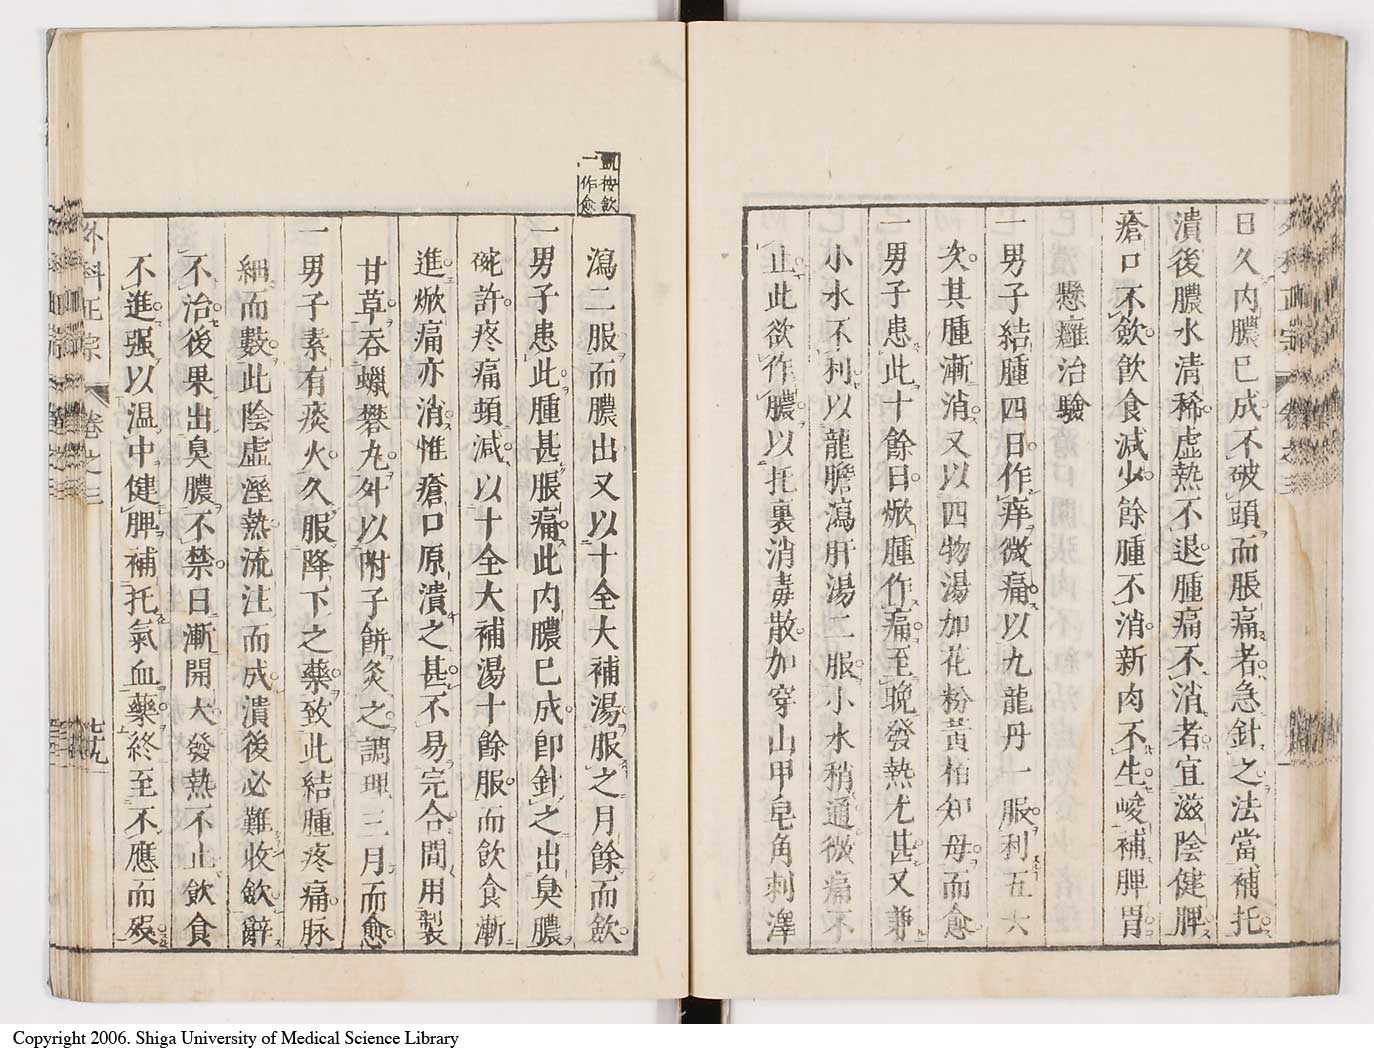 日久內膿已成不破頭而脹痛者急針之法當補托
潰後膿水清稀虛熱不退腫痛不消者宜滋陰健脾
瘡口不斂飲食減少餘腫不消新肉不生峻補脾胃
懸癰治驗
一男子結腫四日作痒微痛以九龍丹一服利五六
次其腫漸消又以四物湯加花粉黃柏知母而愈
一男子患此十餘日焮腫作痛至晚發熱尤甚又兼
小水不利以龍膽瀉肝湯二服小水稍通微痛不
止此欲作膿以托裏消毒散加穿山甲皂角刺澤
凱按飲
一作愈
瀉二服而膿出又以十全大補湯服之月餘而斂
一男子患此腫甚脹痛此內膿已成卽針之出臭膿
碗許疼痛頓減以十全大補湯十餘服而飲食漸
進焮痛亦消惟瘡口原潰之甚不易完合間用製
甘草吞蠟礬丸外以附子餅灸之調理三月而愈
一男子素有痰火久服降下之藥致此結腫疼痛脉
細而數此陰虛溼熱流注而成潰後必難收斂辭
不治後果出臭膿不禁日漸開大發熱不止飲食
不進强以溫中健脾補托氣血藥終至不應而歿
外科正宗 卷之三 七十九
Copyright 2006. Shiga University of Medical Science Library